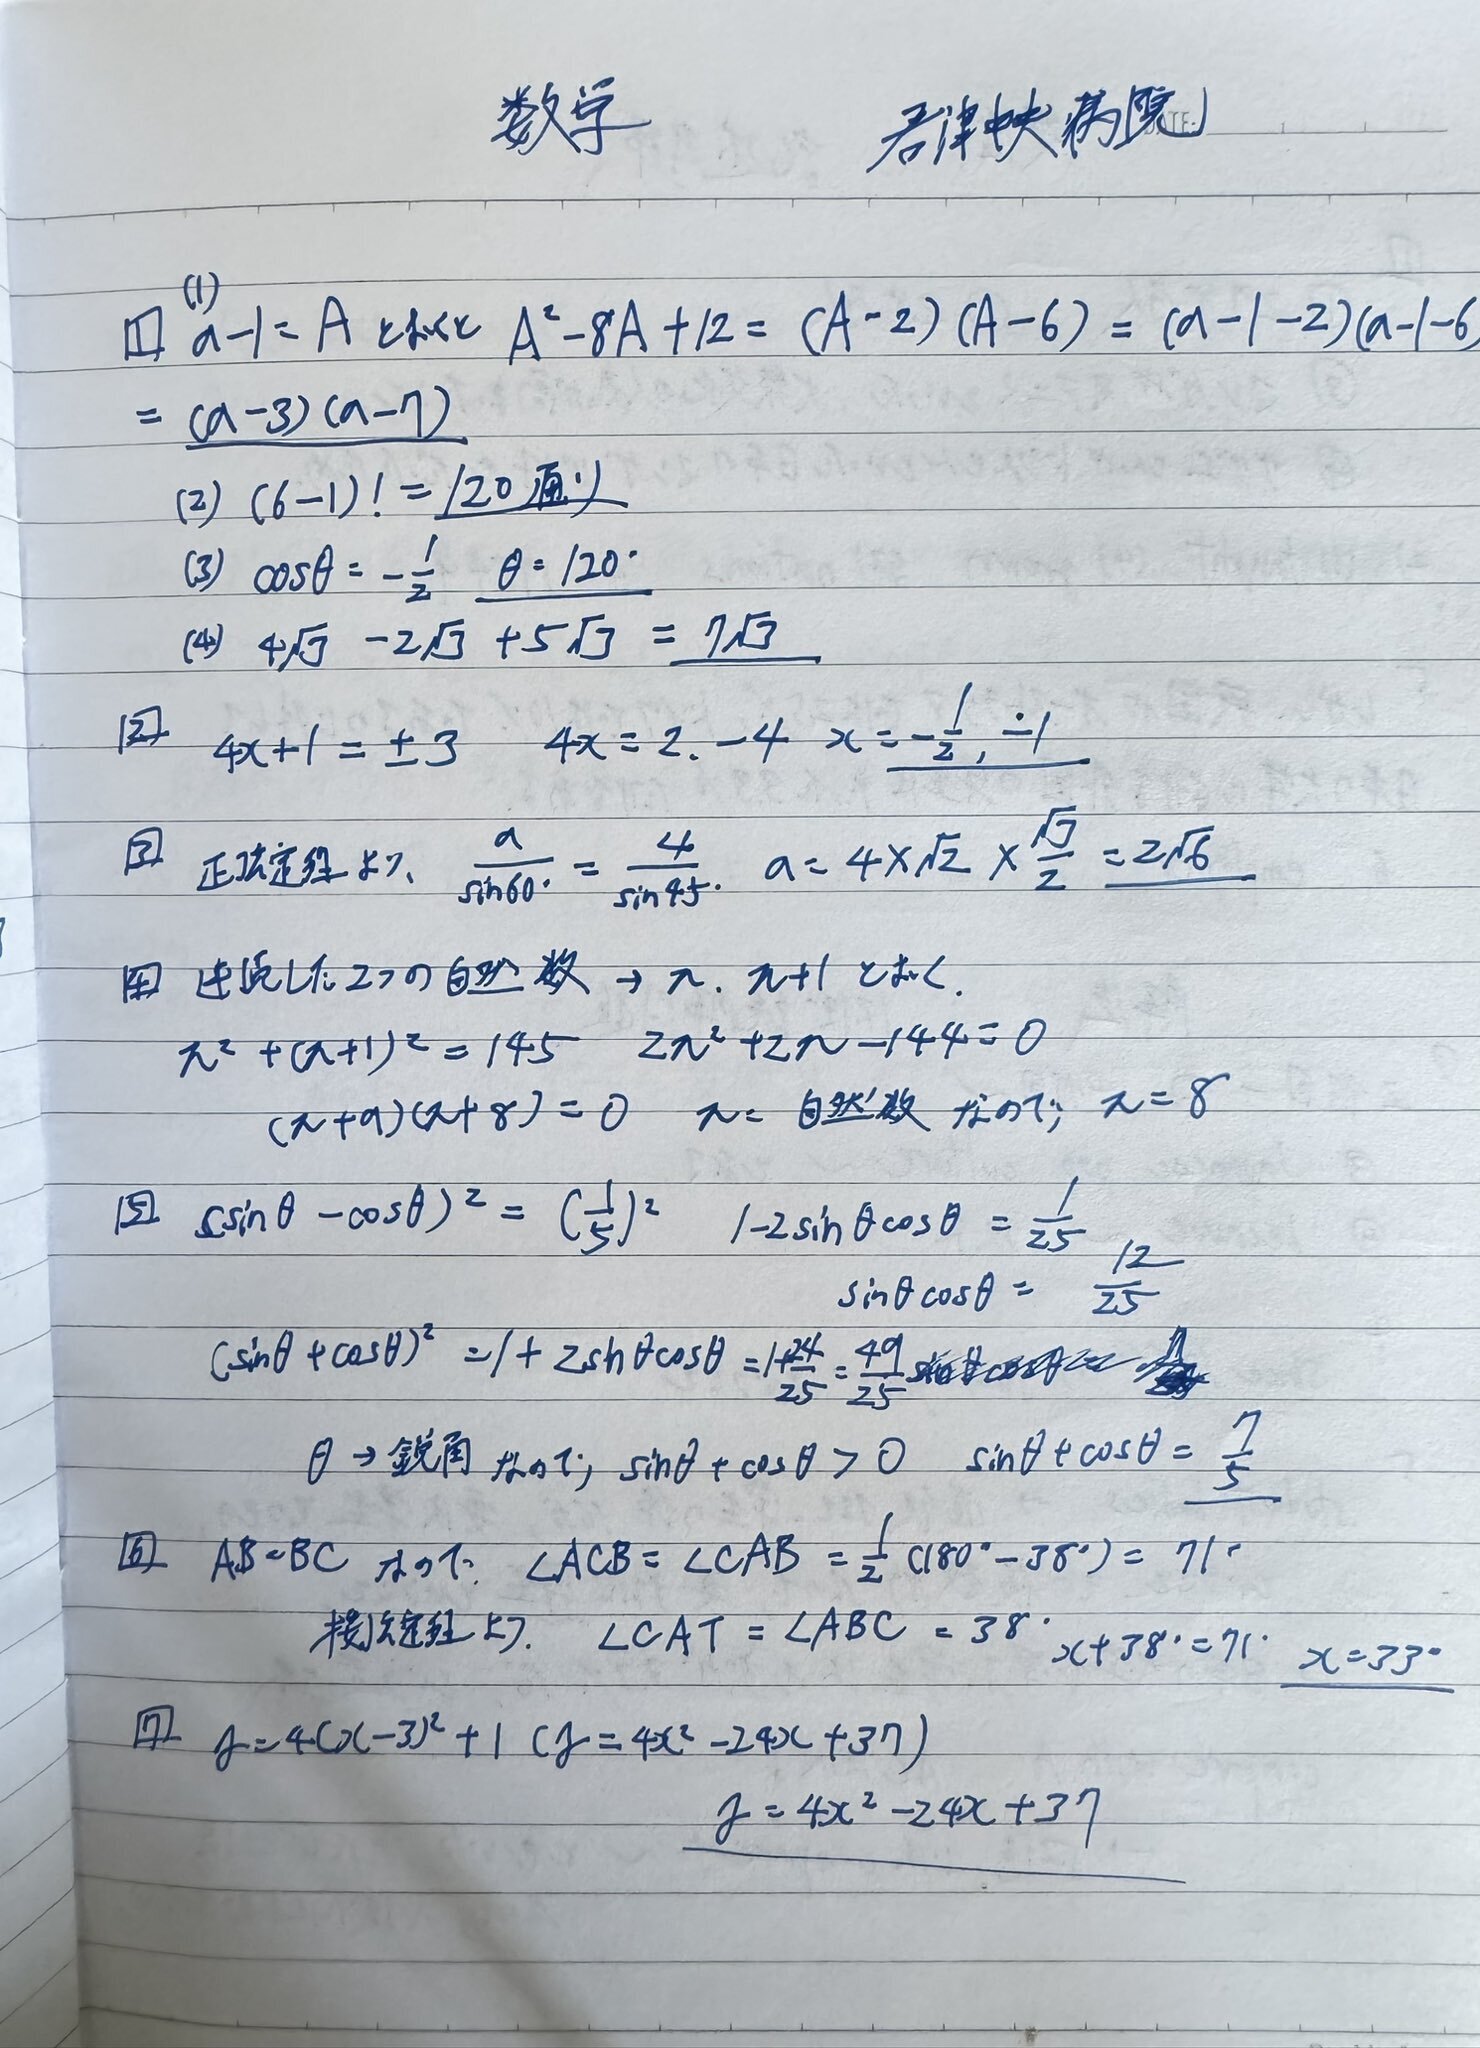 数学 君津中央病院
1 (1) a-1=Aとおくと A²-8A+12=(A-2)(A-6)=(a-1-2)(a-1-6)
=(a-3)(a-7)
(2) (6-1)!=120通り
(3) cosθ=-1/2 θ=120°
(4) 4√3 -2√3 +5√3 =7√3
2 4x+1=±3 4x=2. -4 x=-1/2, -1
3 正弦定理より、 a/sin60°=4/sin45° a=4×√2×√3/2=2√6
4 連続した2つの自然数→n. n+1とおく.
n²+(n+1)²=145 2n²+2n-144=0
(n+9)(n+8)=0 n=自然数なので, n=8
5 (sinθ-cosθ)²=(1/5)² 1-2sinθcosθ=1/25
sinθcosθ=12/25
(sinθ+cosθ)²=1+2sinθcosθ=1+24/25=49/25
θ→鋭角なので, sinθ+cosθ>0 sinθ+cosθ=7/5
6 AB=BCなので. ∠ACB=∠CAB=1/2(180°-38°)=71°
接弦定理より. ∠CAT=∠ABC=38° x+38°=71° x=33°
7 y=4(x-3)²+1 (y=4x²-24x+37)
y=4x²-24x+37